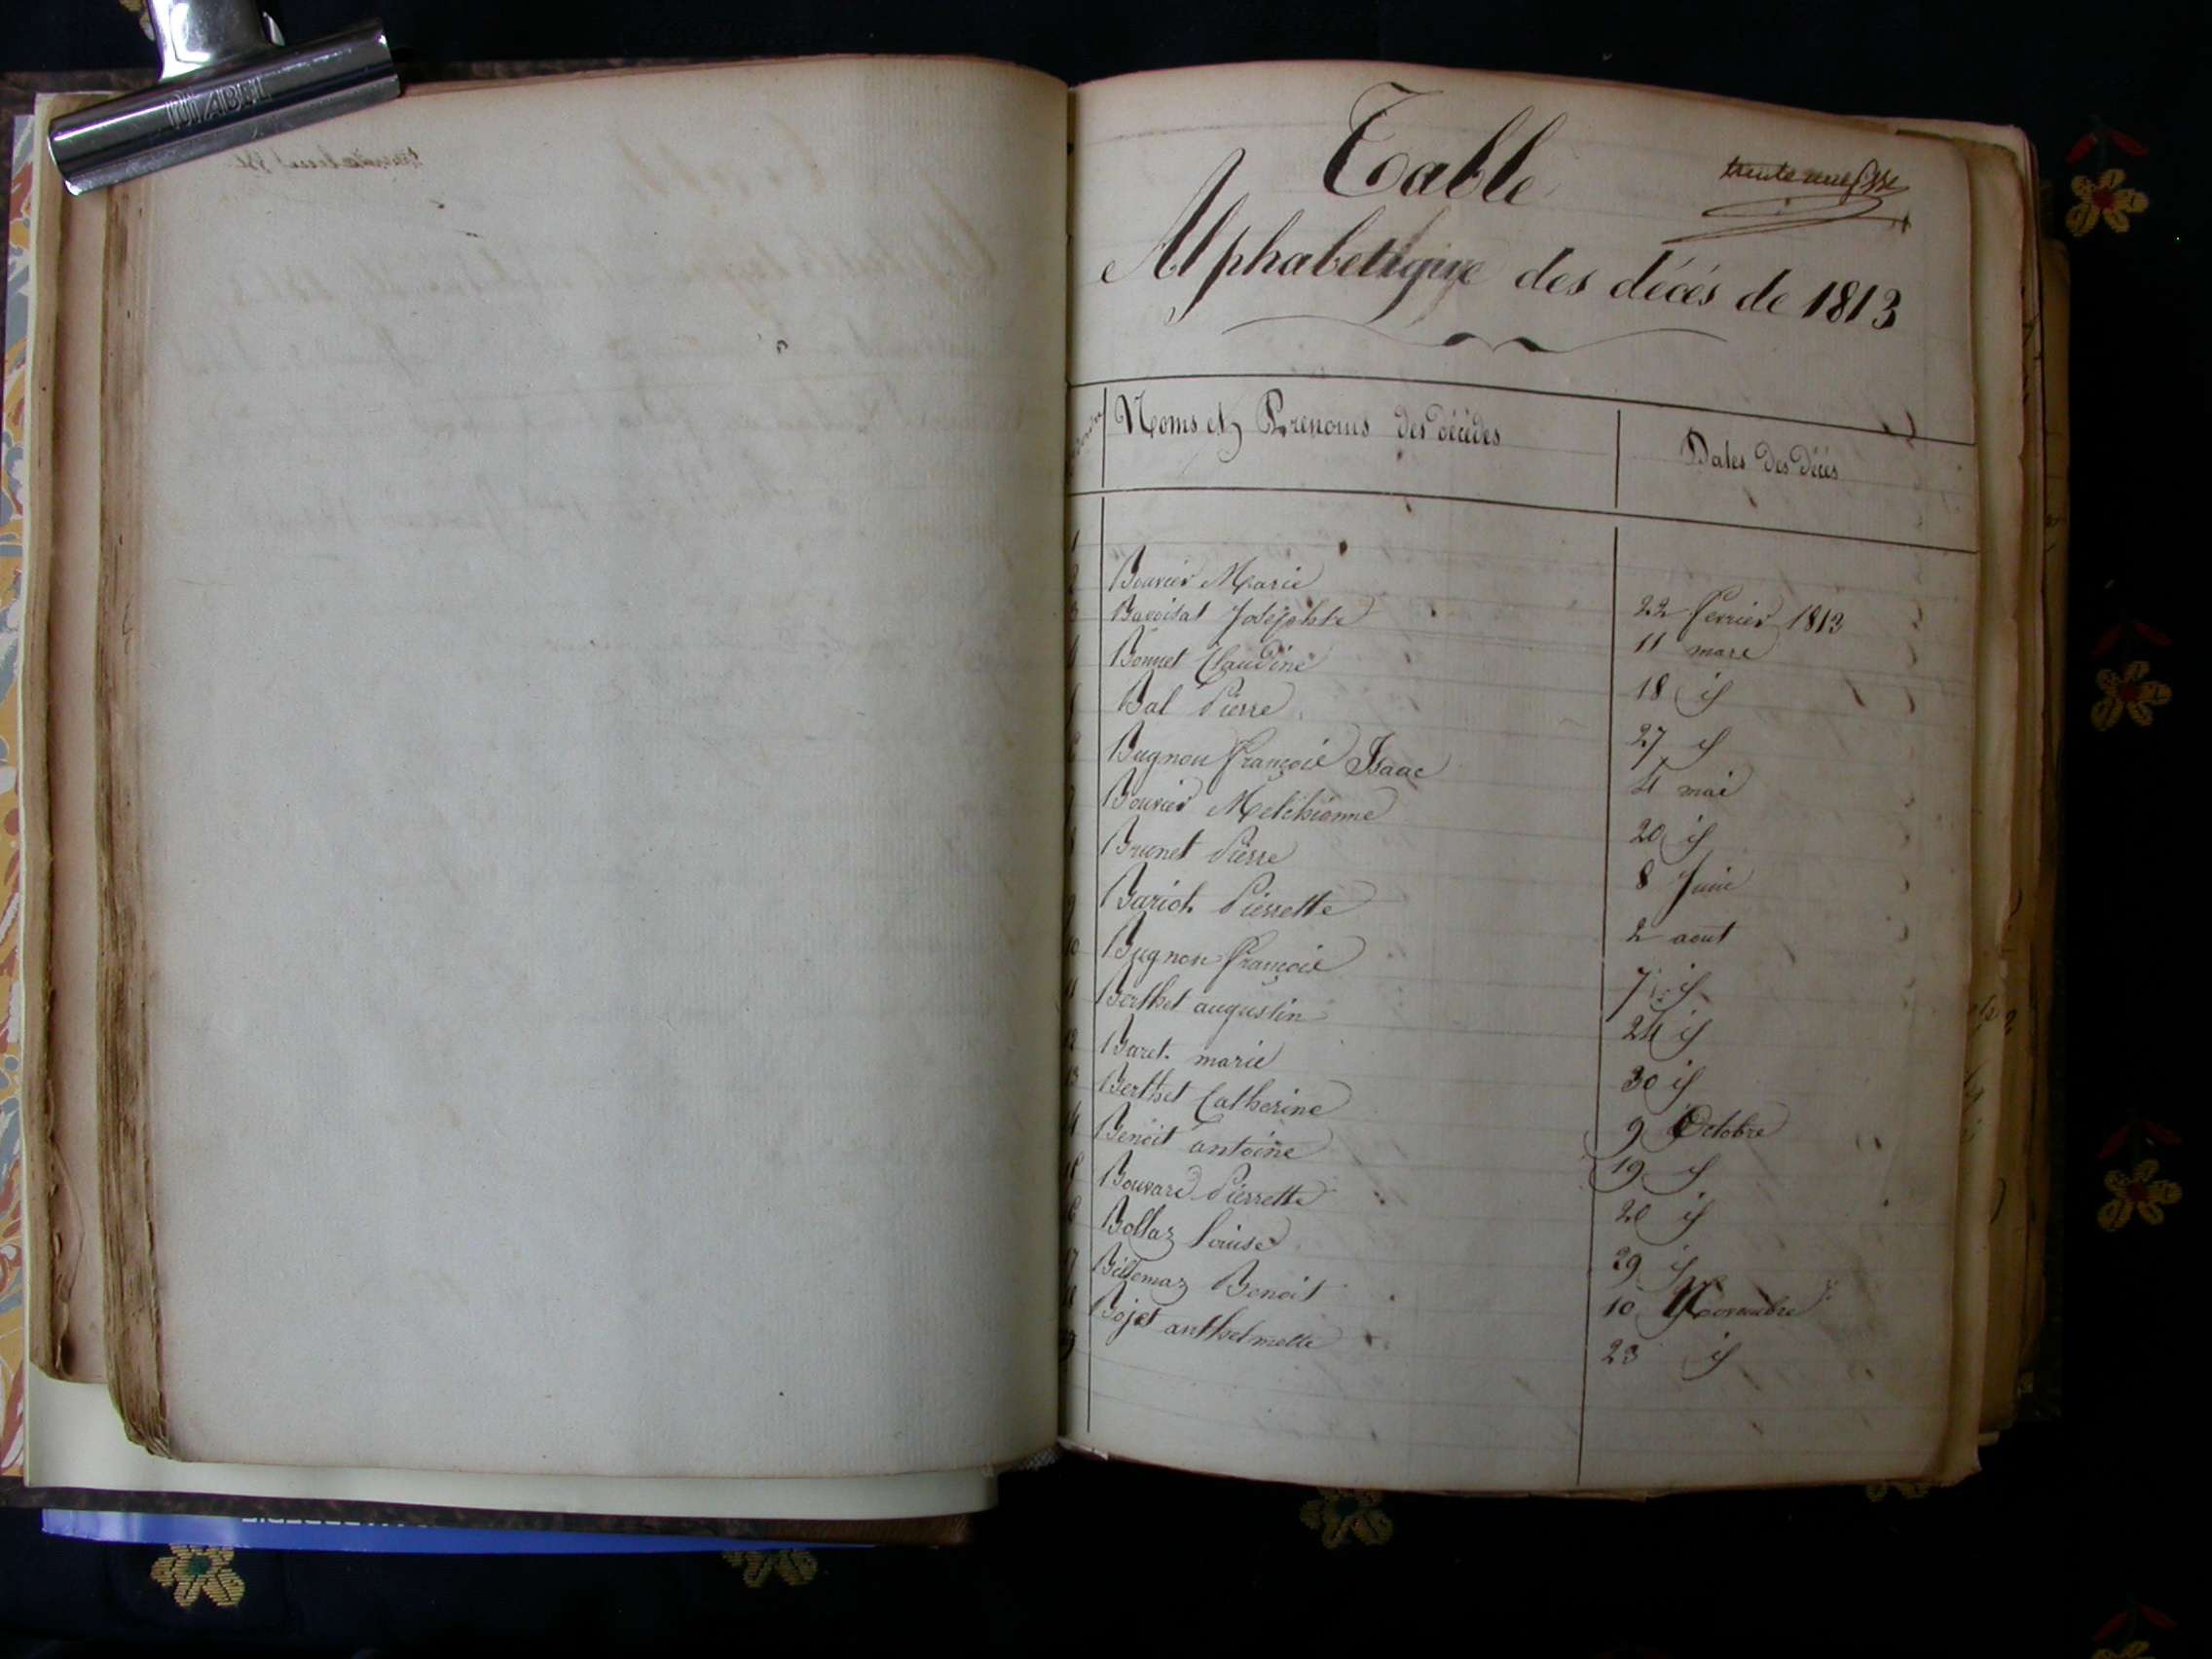 DIABEL
Table
trente neuf
Alphabetique des décés de 1813
Noms et Prenoms des décédés
Dates des décès
1
2 Bouvier Marie 22 fevrier 1813
3 Bavoisat Josephte 11 mars
4 Bonnet Claudine 18 id
5 Bal Pierre 27 id
6 Bugnon françois Isaac 4 mai
7 Bouvier Melchionne 20 id
8 Brunet Pierre 8 Juin
9 Barioh Pierrette 2 aout
10 Bugnon françois 7 id
11 Berthet augustin 24 id
12 Baret marie 30 id
13 Berthet Catherine 9 Octobre
14 Benoit antoine 19 id
15 Bouvard Pierrette 20 id
16 Bollaz Louise 29 id
17 Billemaz Benoit 10 Novembre
18 Bojet anthelmette 23 id
19